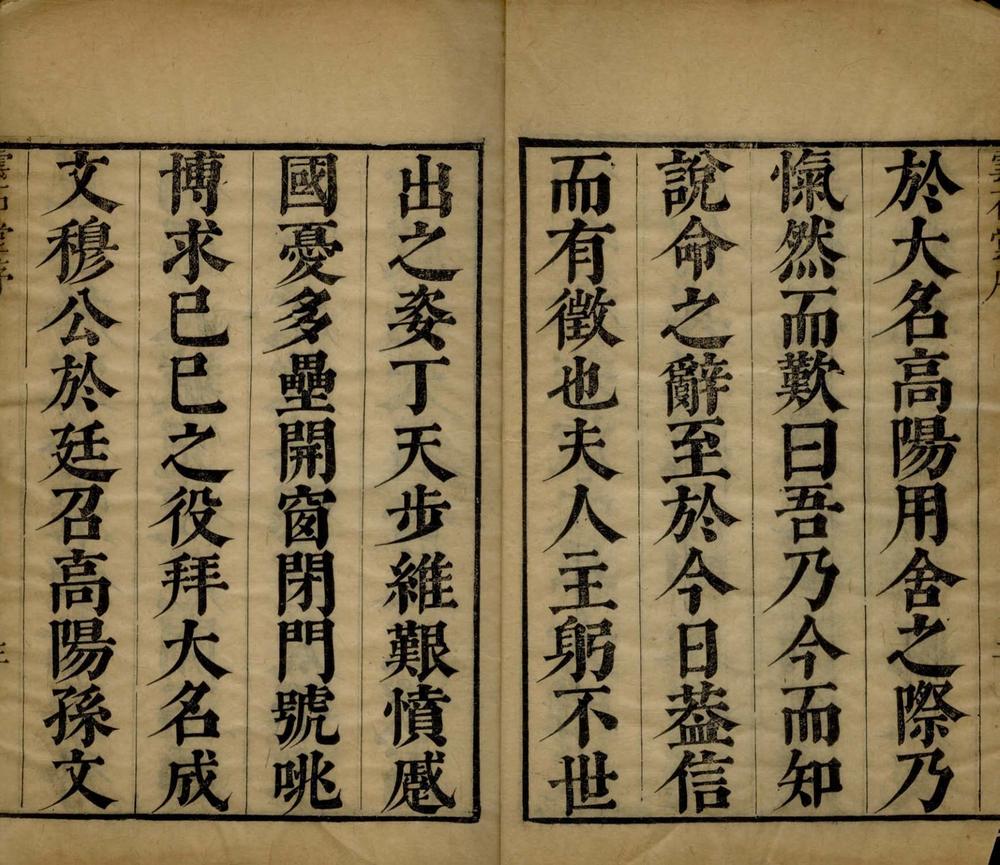 於大名高陽用舍之際乃
愾然而歎曰吾乃今而知
說命之辭至於今日葢信
而有徵也夫人主躬不世
出之姿丁天步維艱憤慼
國憂多壘開窗閉門號咷
博求已巳之役拜大名成
文穆公於廷召高陽孫文